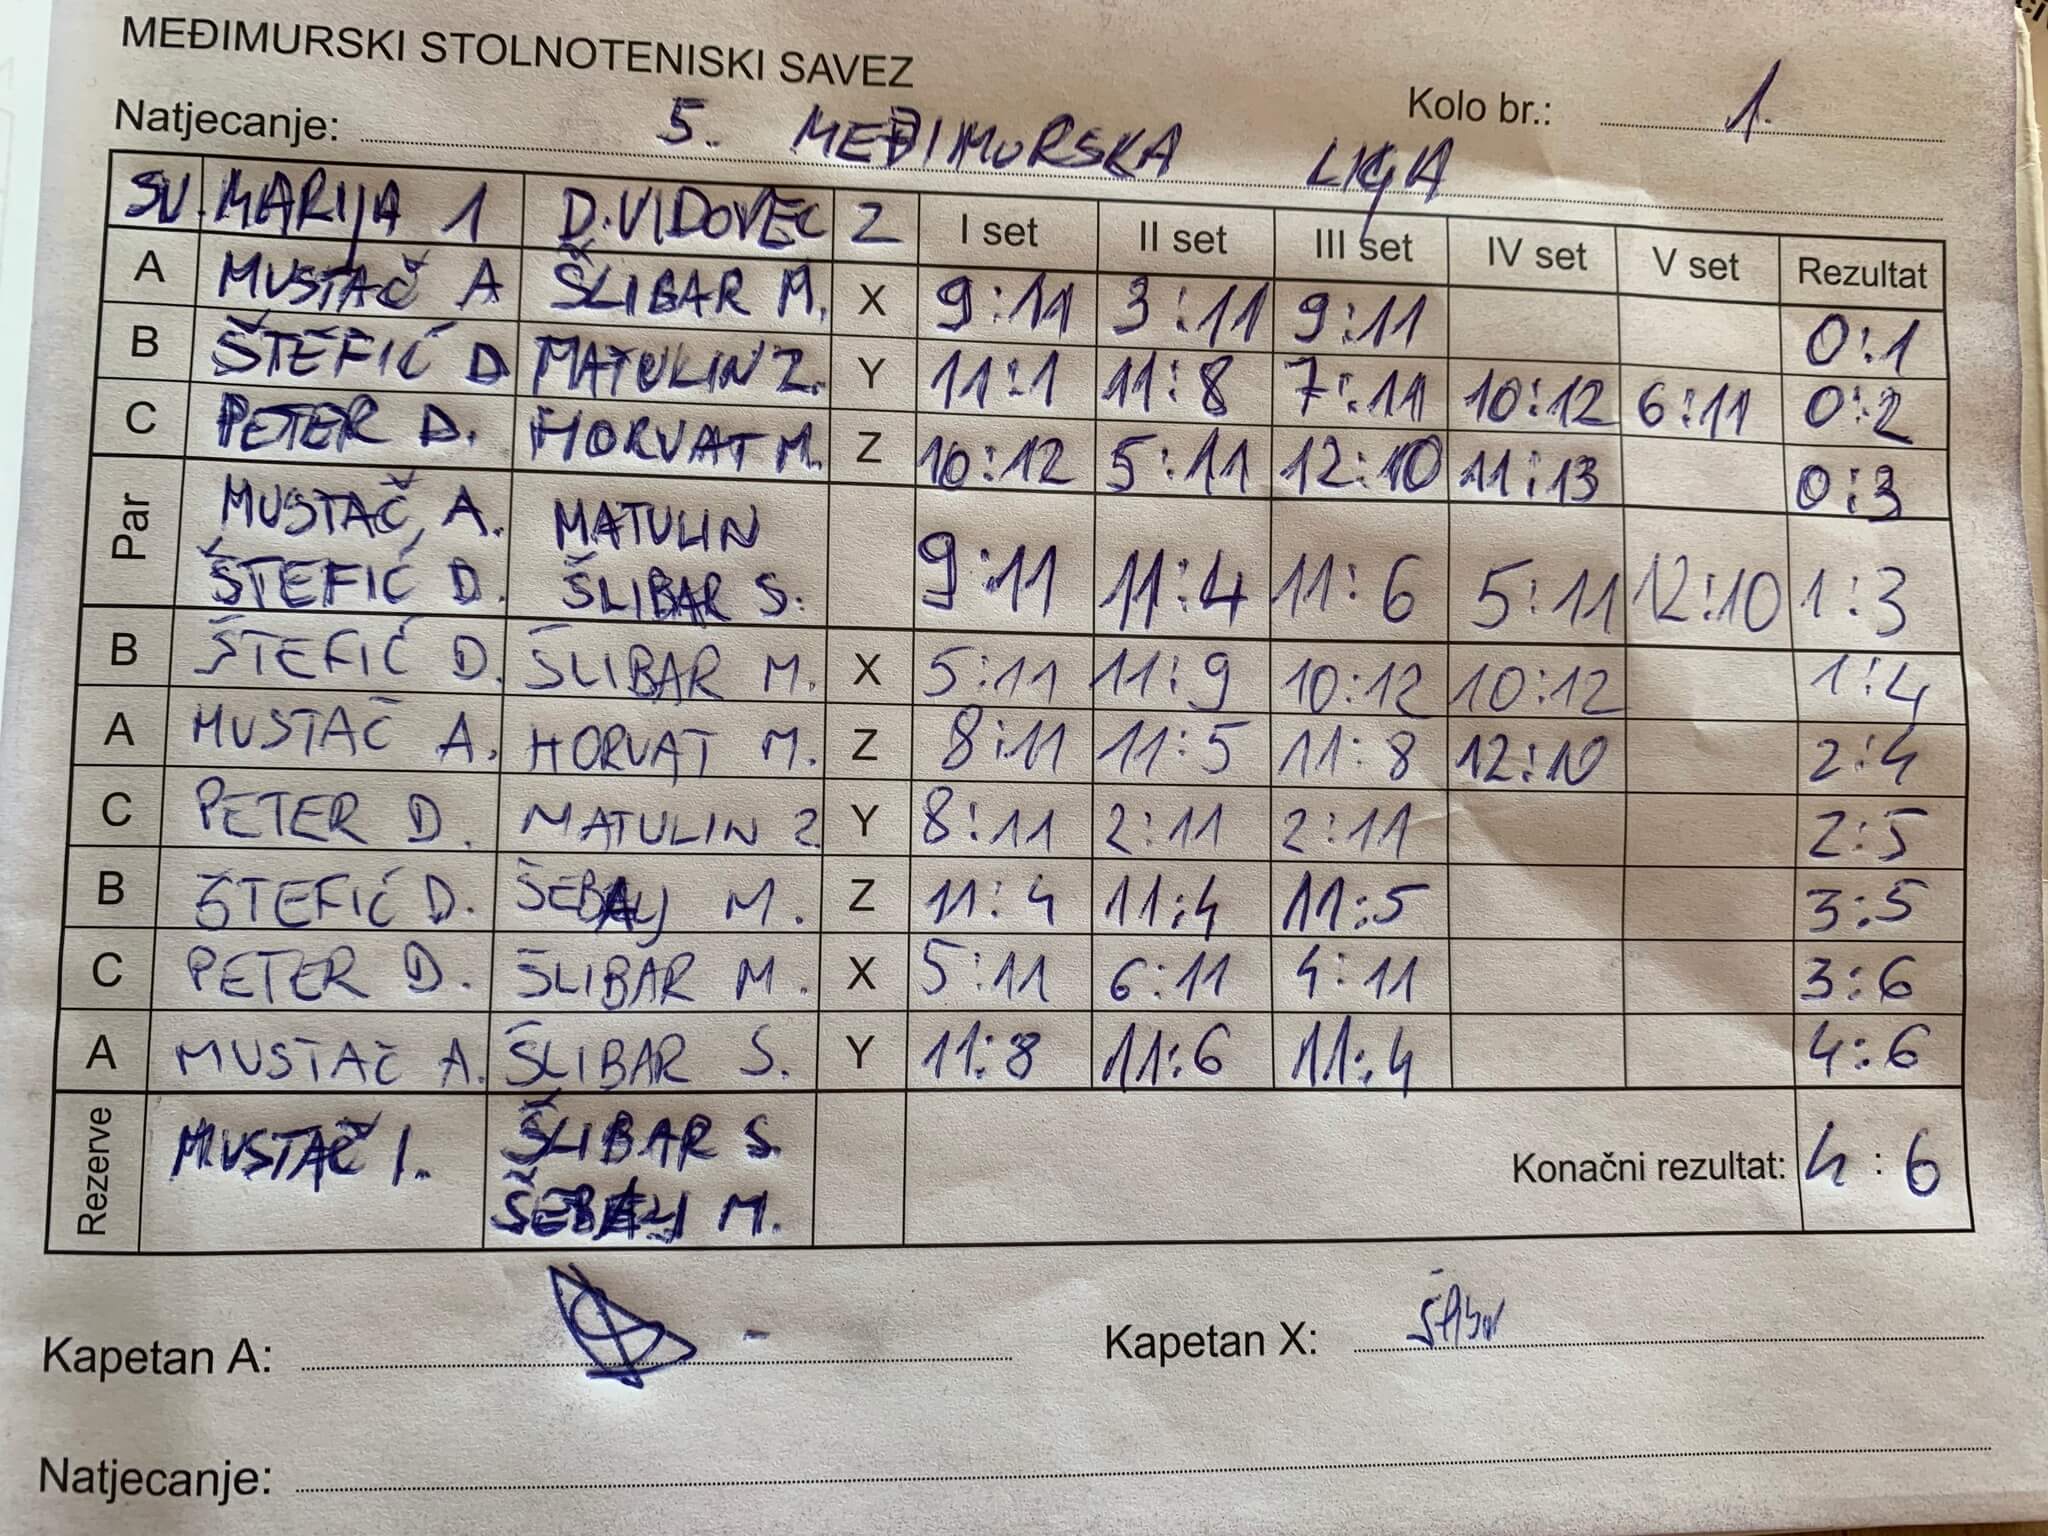 MEĐIMURSKI STOLNOTENISKI SAVEZ
Natjecanje: 5. MEĐIMURSKA LIGA Kolo br.: 1.
SV. MARIJA 1 D. VIDOVEC 2 I set II set III set IV set V set Rezultat
A MUSTAČ A ŠLIBAR M. X 9:11 3:11 9:11 0:1
B ŠTEFIĆ D MATULIN Z. Y 11:1 11:8 7:11 10:12 6:11 0:2
C PETER D. HORVAT M. Z 10:12 5:11 12:10 11:13 0:3
Par MUSTAČ A. MATULIN
ŠTEFIĆ D. ŠLIBAR S. 9:11 11:4 11:6 5:11 12:10 1:3
B ŠTEFIĆ D. ŠLIBAR M. X 5:11 11:9 10:12 10:12 1:4
A MUSTAČ A. HORVAT M. Z 8:11 11:5 11:8 12:10 2:4
C PETER D. MATULIN Z Y 8:11 2:11 2:11 2:5
B ŠTEFIĆ D. M. Z 11:4 11:4 11:5 3:5
C PETER D. ŠLIBAR M. X 5:11 6:11 4:11 3:6
A MUSTAČ A. ŠLIBAR S. Y 11:8 11:6 11:4 4:6
Rezerve MUSTAČ I. ŠLIBAR S.
M. Konačni rezultat: 4:6
Kapetan A: Kapetan X:
Natjecanje: